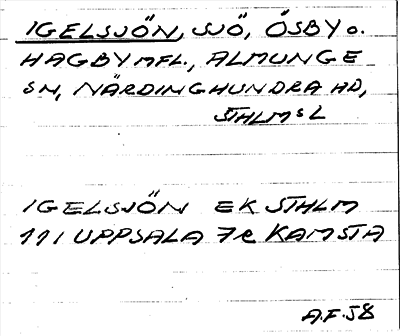 IGELSJÖN, SJÖ, ÖSBY o.
HAGBY MFL., ALMUNGE
SN, NÄRDINGHUNDRA HD,
STHLMS L
IGELSJÖN EK STHLM
111 UPPSALA 7e KAMSTA
A.F. 58